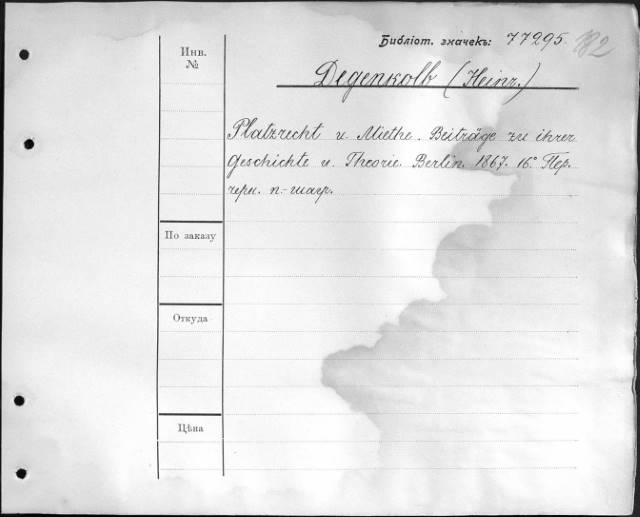 Библіот. значекъ: 77295.
Инв.
№
Degenkolb (Heinr.)
Platzrecht u. Miethe. Beiträge zu ihrer
Geschichte u. Theorie. Berlin. 1867. 16° Пер.
черн. п.-шагр.
По заказу
Откуда
Цѣна